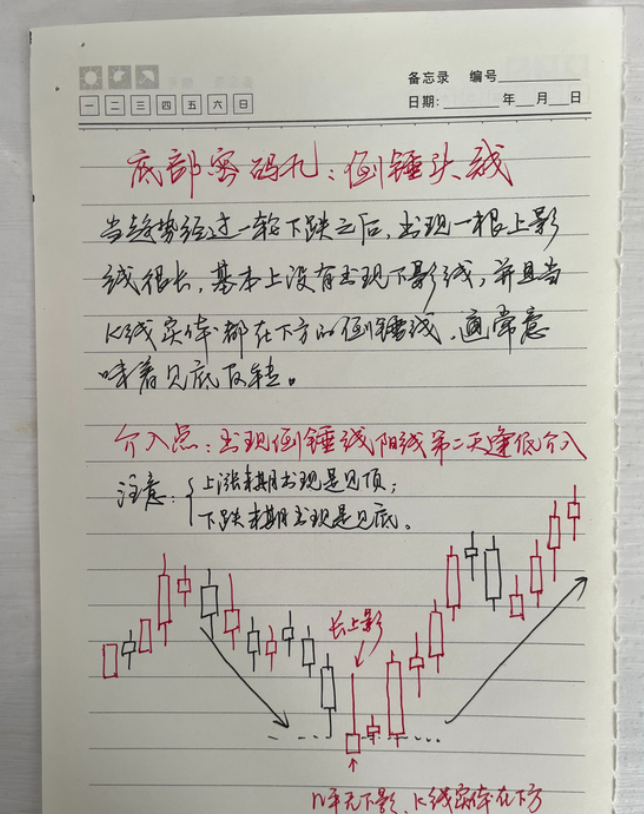 备忘录 编号
一 二 三 四 五 六 日
日期: 年 月 日
底部密码九:倒锤头线
当趋势经过一轮下跌之后,出现一根上影
线很长,基本上没有出现下影线,并且当
K线实体都在下方的倒锤线,通常意
味着见底反转。
介入点:出现倒锤线阳线第二天逢低介入
注意:
上涨末期出现是见顶;
下跌末期出现是见底。
长上影
几乎无下影、K线实体在下方